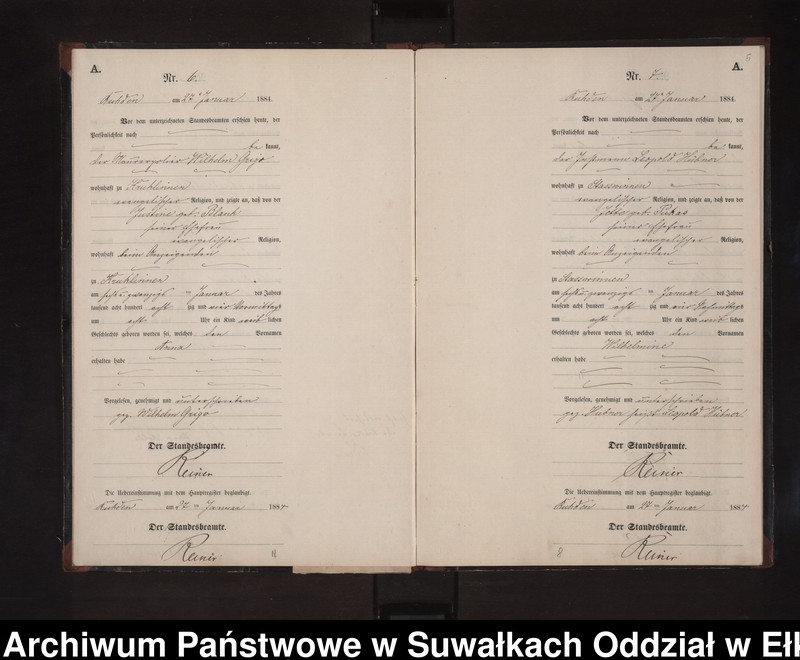 A.
Nr. 6.
am 27 Januar 1884.
Vor dem unterzeichneten Standesbeamten erschien heute, der
Persönlichkeit nach
be kannt,
der Wilhelm Grigo
wohnhaft zu Kruklinnen
evangelischer Religion, und zeigte an, daß von der
Justine geb. Blank
seiner Ehefrau
evangelischer Religion,
wohnhaft beim Anzeigenden
zu Kruklinnen
am Januar des Jahres
tausend acht hundert acht zig und vier Vormittags
um acht Uhr ein Kind weib lichen
Geschlechts geboren worden sei, welches den Vornamen
Anna
erhalten habe
Vorgelesen, genehmigt und unterschrieben
gez. Wilhelm Grigo
Der Standesbeamte.
Reiner
Die Uebereinstimmung mit dem Hauptregister beglaubigt.
am 27 Januar 1884
Der Standesbeamte.
Reiner
11
5
A.
Nr. 7.
am 27 Januar 1884.
Vor dem unterzeichneten Standesbeamten erschien heute, der
Persönlichkeit nach
be kannt,
der Instmann Leopold Hübner
wohnhaft zu Staswinnen
evangelischer Religion, und zeigte an, daß von der
geb.
seiner Ehefrau
evangelischer Religion,
wohnhaft beim Anzeigenden
zu Staswinnen
am Januar des Jahres
tausend acht hundert acht zig und vier Nachmittags
um acht Uhr ein Kind weib lichen
Geschlechts geboren worden sei, welches den Vornamen
Wilhelmine
erhalten habe
Vorgelesen, genehmigt und unterschrieben
gez. Leopold Hübner
Der Standesbeamte.
Reiner
Die Uebereinstimmung mit dem Hauptregister beglaubigt.
am 27 Januar 1884
Der Standesbeamte.
Reiner
8
Archiwum Państwowe w Suwałkach Oddział w Ełk